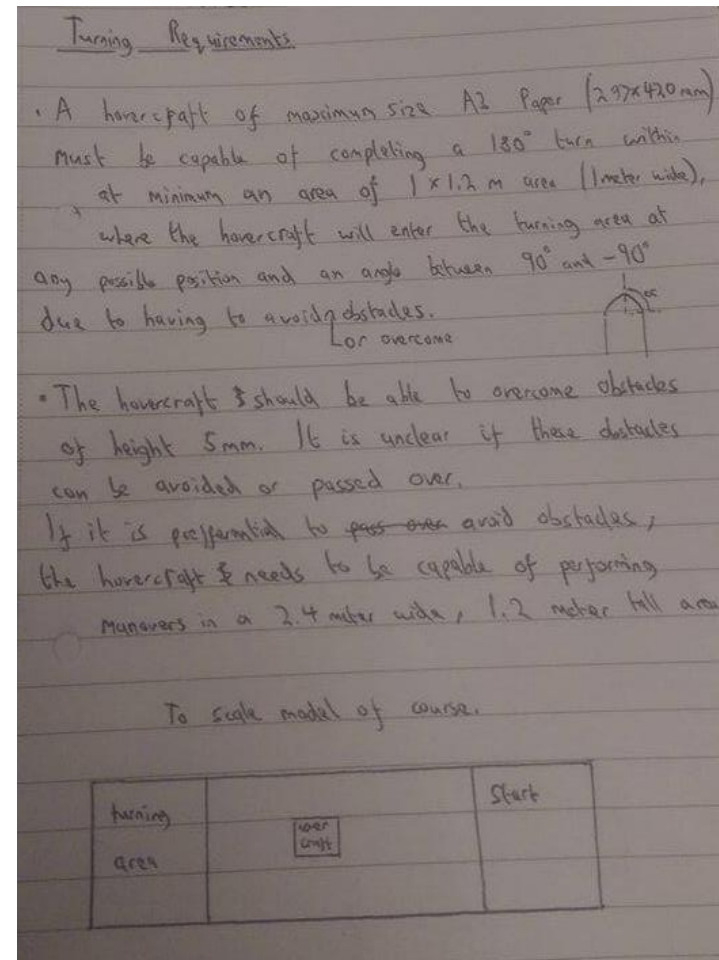 Turning Requirements
• A hovercraft of maximum size A3 Paper (297x420 mm)
must be capable of completing a 180° turn within
at minimum an area of 1 x 1.2 m area (1 meter wide),
where the hovercraft will enter the turning area at
any possible position and an angle between 90° and -90°
due to having to avoid obstacles.
or overcome
• The hovercraft should be able to overcome obstacles
of height 5mm. It is unclear if these obstacles
can be avoided or passed over.
If it is preffarential to pass over avoid obstacles,
the hovercraft needs to be capable of performing
manovers in a 2.4 meter wide, 1.2 meter tall area
To scale model of course.
turning
area
hover
craft
Start